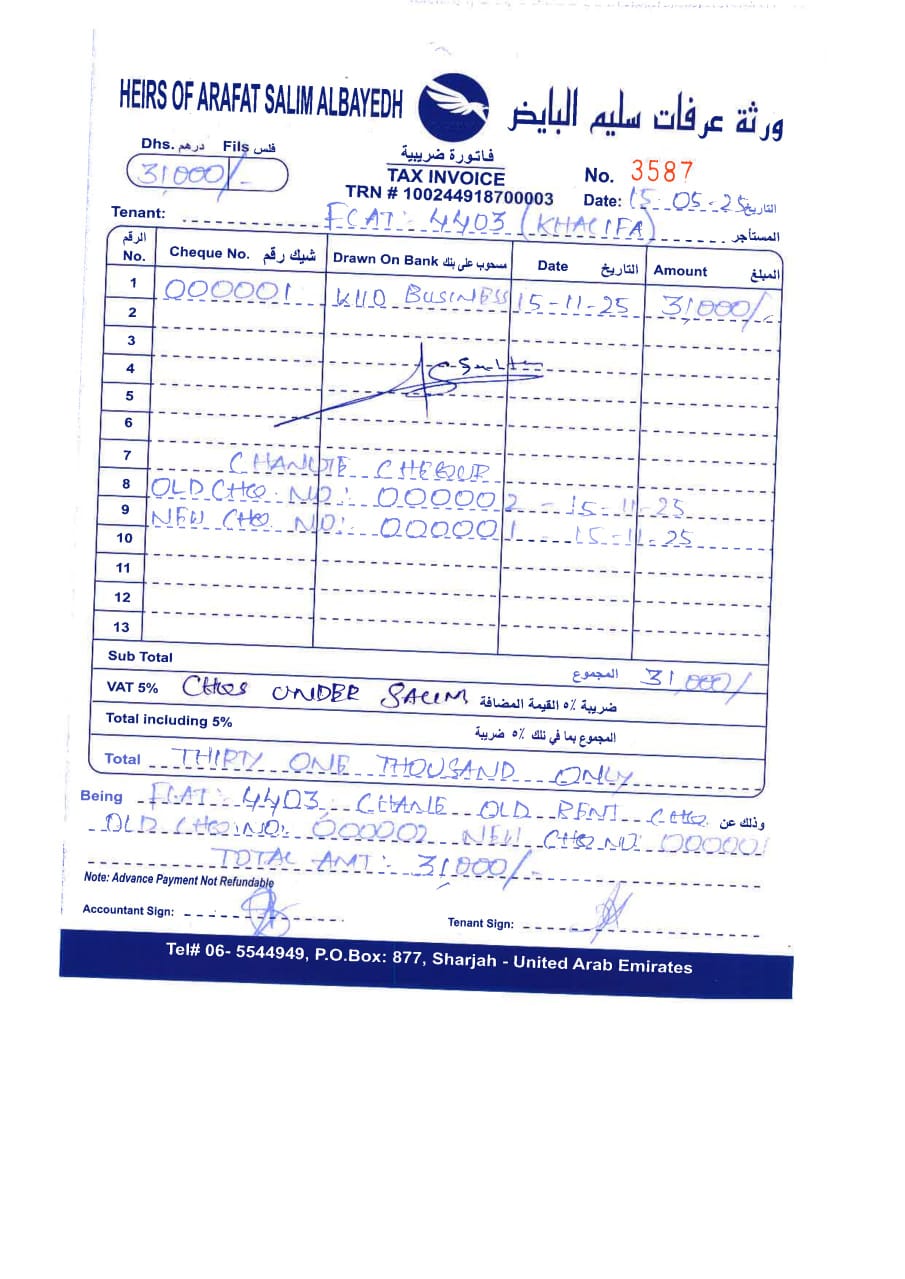 HEIRS OF ARAFAT SALIM ALBAYEDH ورثة عرفات سليم البايض
Dhs. درهم Fils فلس
31,000/-
فاتورة ضريبية
TAX INVOICE
TRN # 100244918700003
No. 3587
Date: 15-05-25 التاريخ
Tenant: FLAT:- 4403 (KHALIFA) المستأجر
الرقم No. Cheque No. شيك رقم Drawn On Bank مسحوب على بنك Date التاريخ Amount المبلغ
1 000001 BUSINESS 15-11-25 31,000/-
2
3
4
5
6
7 CHEQUE
8 OLD CHQ. NO:- 000002 - 15-11-25
9 NEW CHQ. NO:- 000001 - 15-11-25
10
11
12
13
Sub Total المجموع 31,000/
VAT 5% CHQS UNDER SALIM ضريبة ٥٪ القيمة المضافة
Total including 5% المجموع بما في ذلك ٥٪ ضريبة
Total THIRTY ONE THOUSAND ONLY
Being FLAT:- 4403 OLD RENT CHQ وذلك عن
OLD CHQ NO: 000002 NEW CHQ NO: 000001
TOTAL AMT:- 31,000/-
Note: Advance Payment Not Refundable
Accountant Sign:
Tenant Sign:
Tel# 06- 5544949, P.O.Box: 877, Sharjah - United Arab Emirates